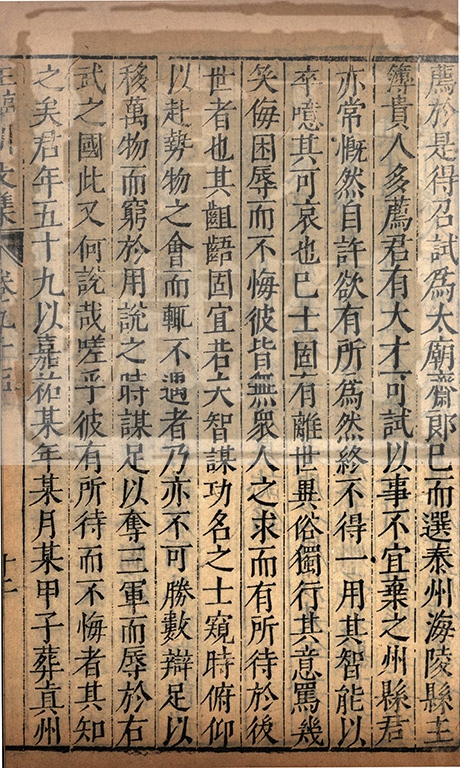 薦於是得召試為太廟齋郎已而選泰州海陵縣主
簿貴人多薦君有大才可試以事不宜棄之州縣君
亦常慨然自許欲有所為然終不得一用其智能以
卒噫其可哀也已士固有離世異俗獨行其意罵幾
笑侮困辱而不悔彼皆無衆人之求而有所待於後
世者也其齟齬固宜若夫智謀功名之士窺時俯仰
以赴勢物之會而輒不遇者乃亦不可勝數辯足以
移萬物而窮於用說之時謀足以奪三軍而辱於右
武之國此又何說哉嗟乎彼有所待而不悔者其知
之矣君年五十九以嘉祐某年某月某甲子葬真州
王臨川文集 卷九十五